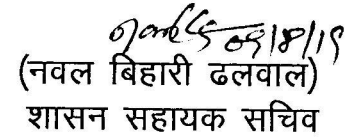 09/8/19
(नवल बिहारी ढलवाल)
शासन सहायक सचिव